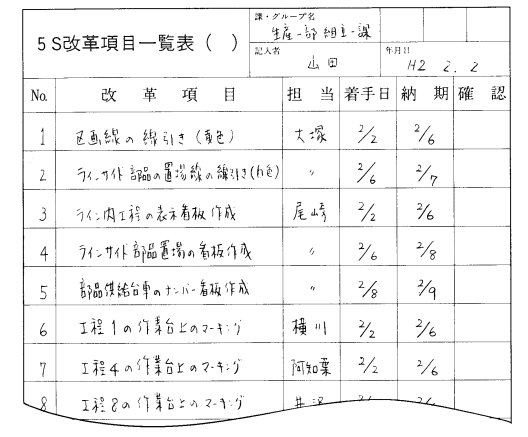 課・グループ名
生産一部 組立一課
5S改革項目一覧表( )
記入者 年月日
山田 H2 2. 2
No. 改革項目 担当 着手日 納期 確認
1 区画線の線引き(黄色) 大塚 2/2 2/6
2 ラインサイド部品の置場線の線引き(白色) 〃 2/6 2/7
3 ライン内工程の表示看板作成 尾崎 2/2 2/6
4 ラインサイド部品置場の看板作成 〃 2/6 2/8
5 部品供給台車のナンバー看板作成 〃 2/8 2/9
6 工程1の作業台上のマーキング 横川 2/2 2/6
7 工程4の作業台上のマーキング 阿知葉 2/2 2/6
8 工程8の作業台上のマーキング